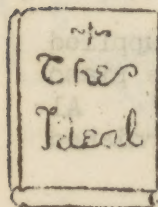 The
Ideal